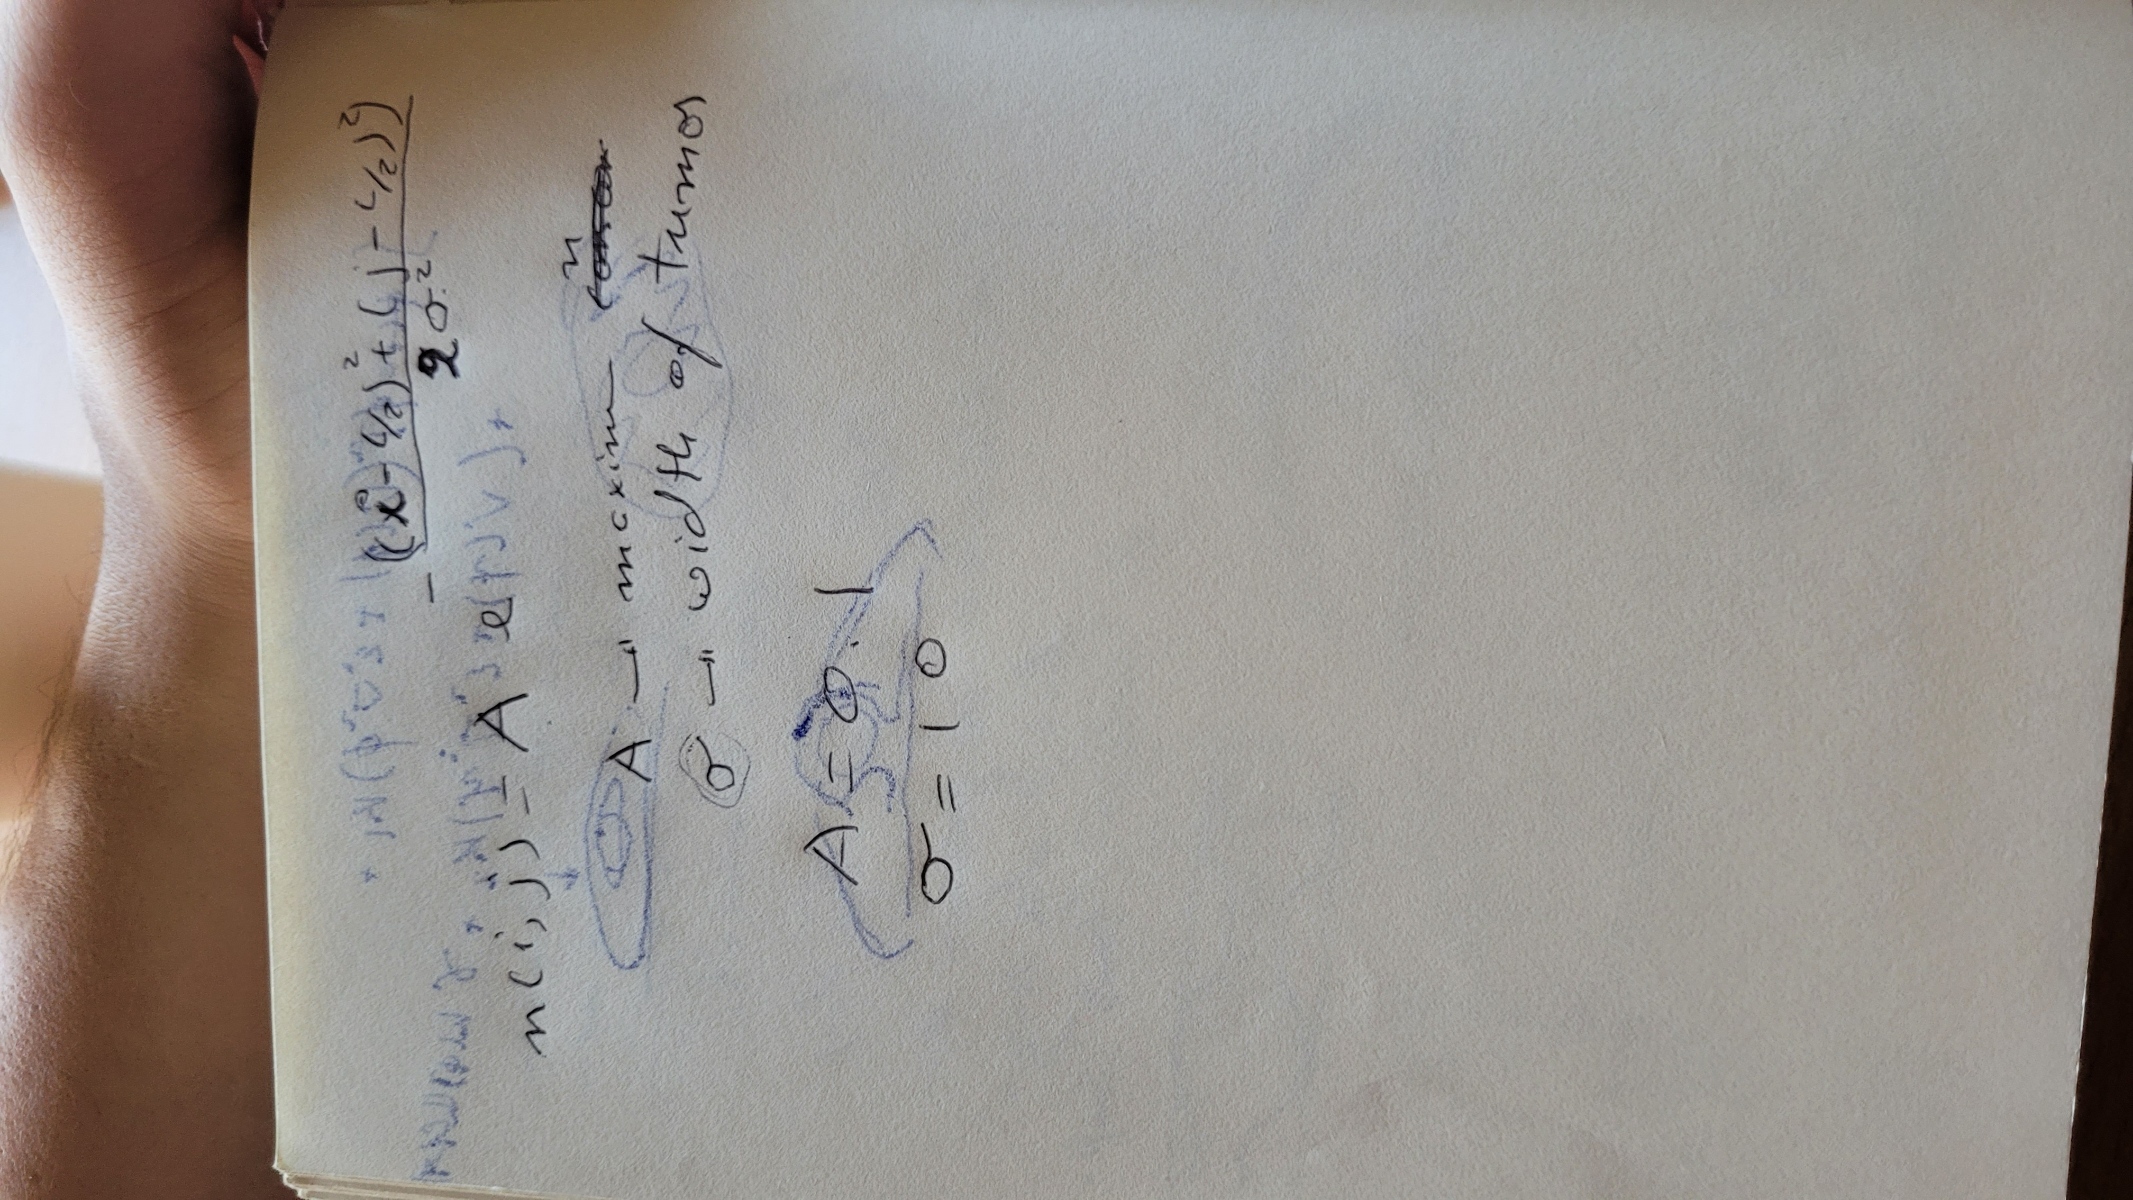 n(i, j) = A e^-((i - L/2)² + (j - L/2)²) / 2σ²
A → maxim n
σ → width of tumor
A = 0.1
σ = 10